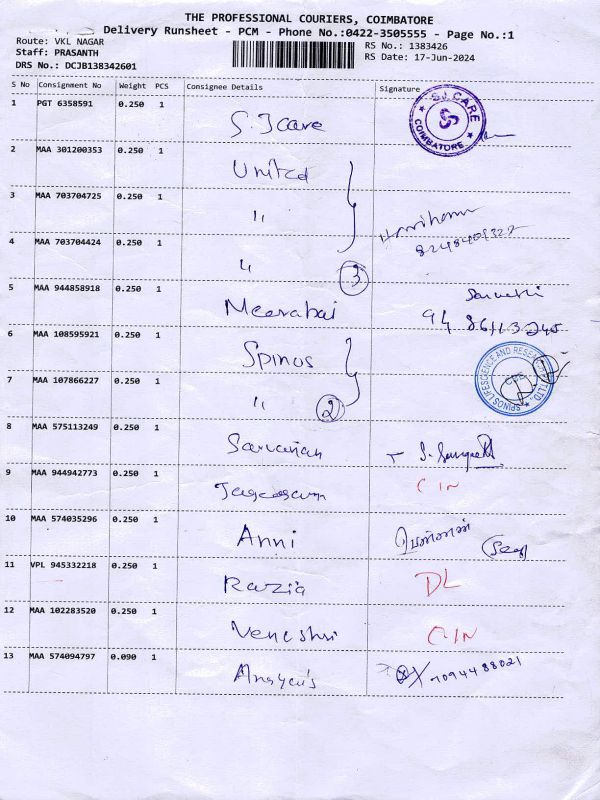 THE PROFESSIONAL COURIERS, COIMBATORE
Delivery Runsheet - PCM - Phone No.:0422-3505555 - Page No.:1
Route: VKL NAGAR
RS No.: 1383426
Staff: PRASANTH
RS Date: 17-Jun-2024
DRS No.: DCJB138342601
S No Consignment No Weight PCS Consignee Details Signature
1 PGT 6358591 0.250 1 S.J care
S.J. CARE COIMBATORE
2 MAA 301200353 0.250 1 United
3 MAA 703704725 0.250 1 "
4 MAA 703704424 0.250 1 "
3
5 MAA 944858918 0.250 1 Meerabai
6 MAA 108595921 0.250 1 Spinos
SPINOS LIFESCIENCE AND RESEARCH PVT LTD
CBE
7 MAA 107866227 0.250 1 "
2
8 MAA 575113249 0.250 1 Saravanan
9 MAA 944942773 0.250 1 CIN
10 MAA 574035296 0.250 1 Anni
11 VPL 945332218 0.250 1 Razia DL
12 MAA 102283520 0.250 1 CIN
13 MAA 574094797 0.090 1 7094488021